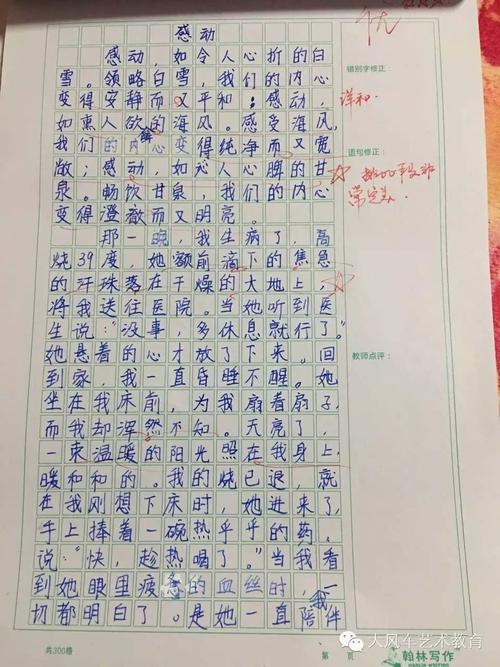 感动
优
感动，如令人心折的白
雪。领略白雪，我们的内心
变得安静而又平和；感动，
如熏人欲醉的海风。感受海风，
我们的内心变得纯净而又宽
敞；感动，如沁人心脾的甘
泉。畅饮甘泉，我们的内心
变得澄澈而又明亮。
那一晚，我生病了，高
烧39度，她额前滴下的焦急
的汗珠落在干燥的大地上；
将我送往医院。当她听到医
生说：“没事，多休息就行了。”
她悬着的心才放了下来。回
到家，我一直昏睡不醒。她
坐在我床前，为我扇着扇子，
而我却浑然不知。天亮了，
一束温暖的阳光照在我身上，
暖和和的。我的烧已退，就
在我刚想下床时，她进来了，
手上捧着一碗热乎乎的药，
说：“快，趁热喝了。”当我看
到她眼里疲惫的血丝时，我一
切都明白了。是她一直陪伴
错别字修正：
语句修正：
教师点评：
共300格
第 页
翰林写作
大风车艺术教育